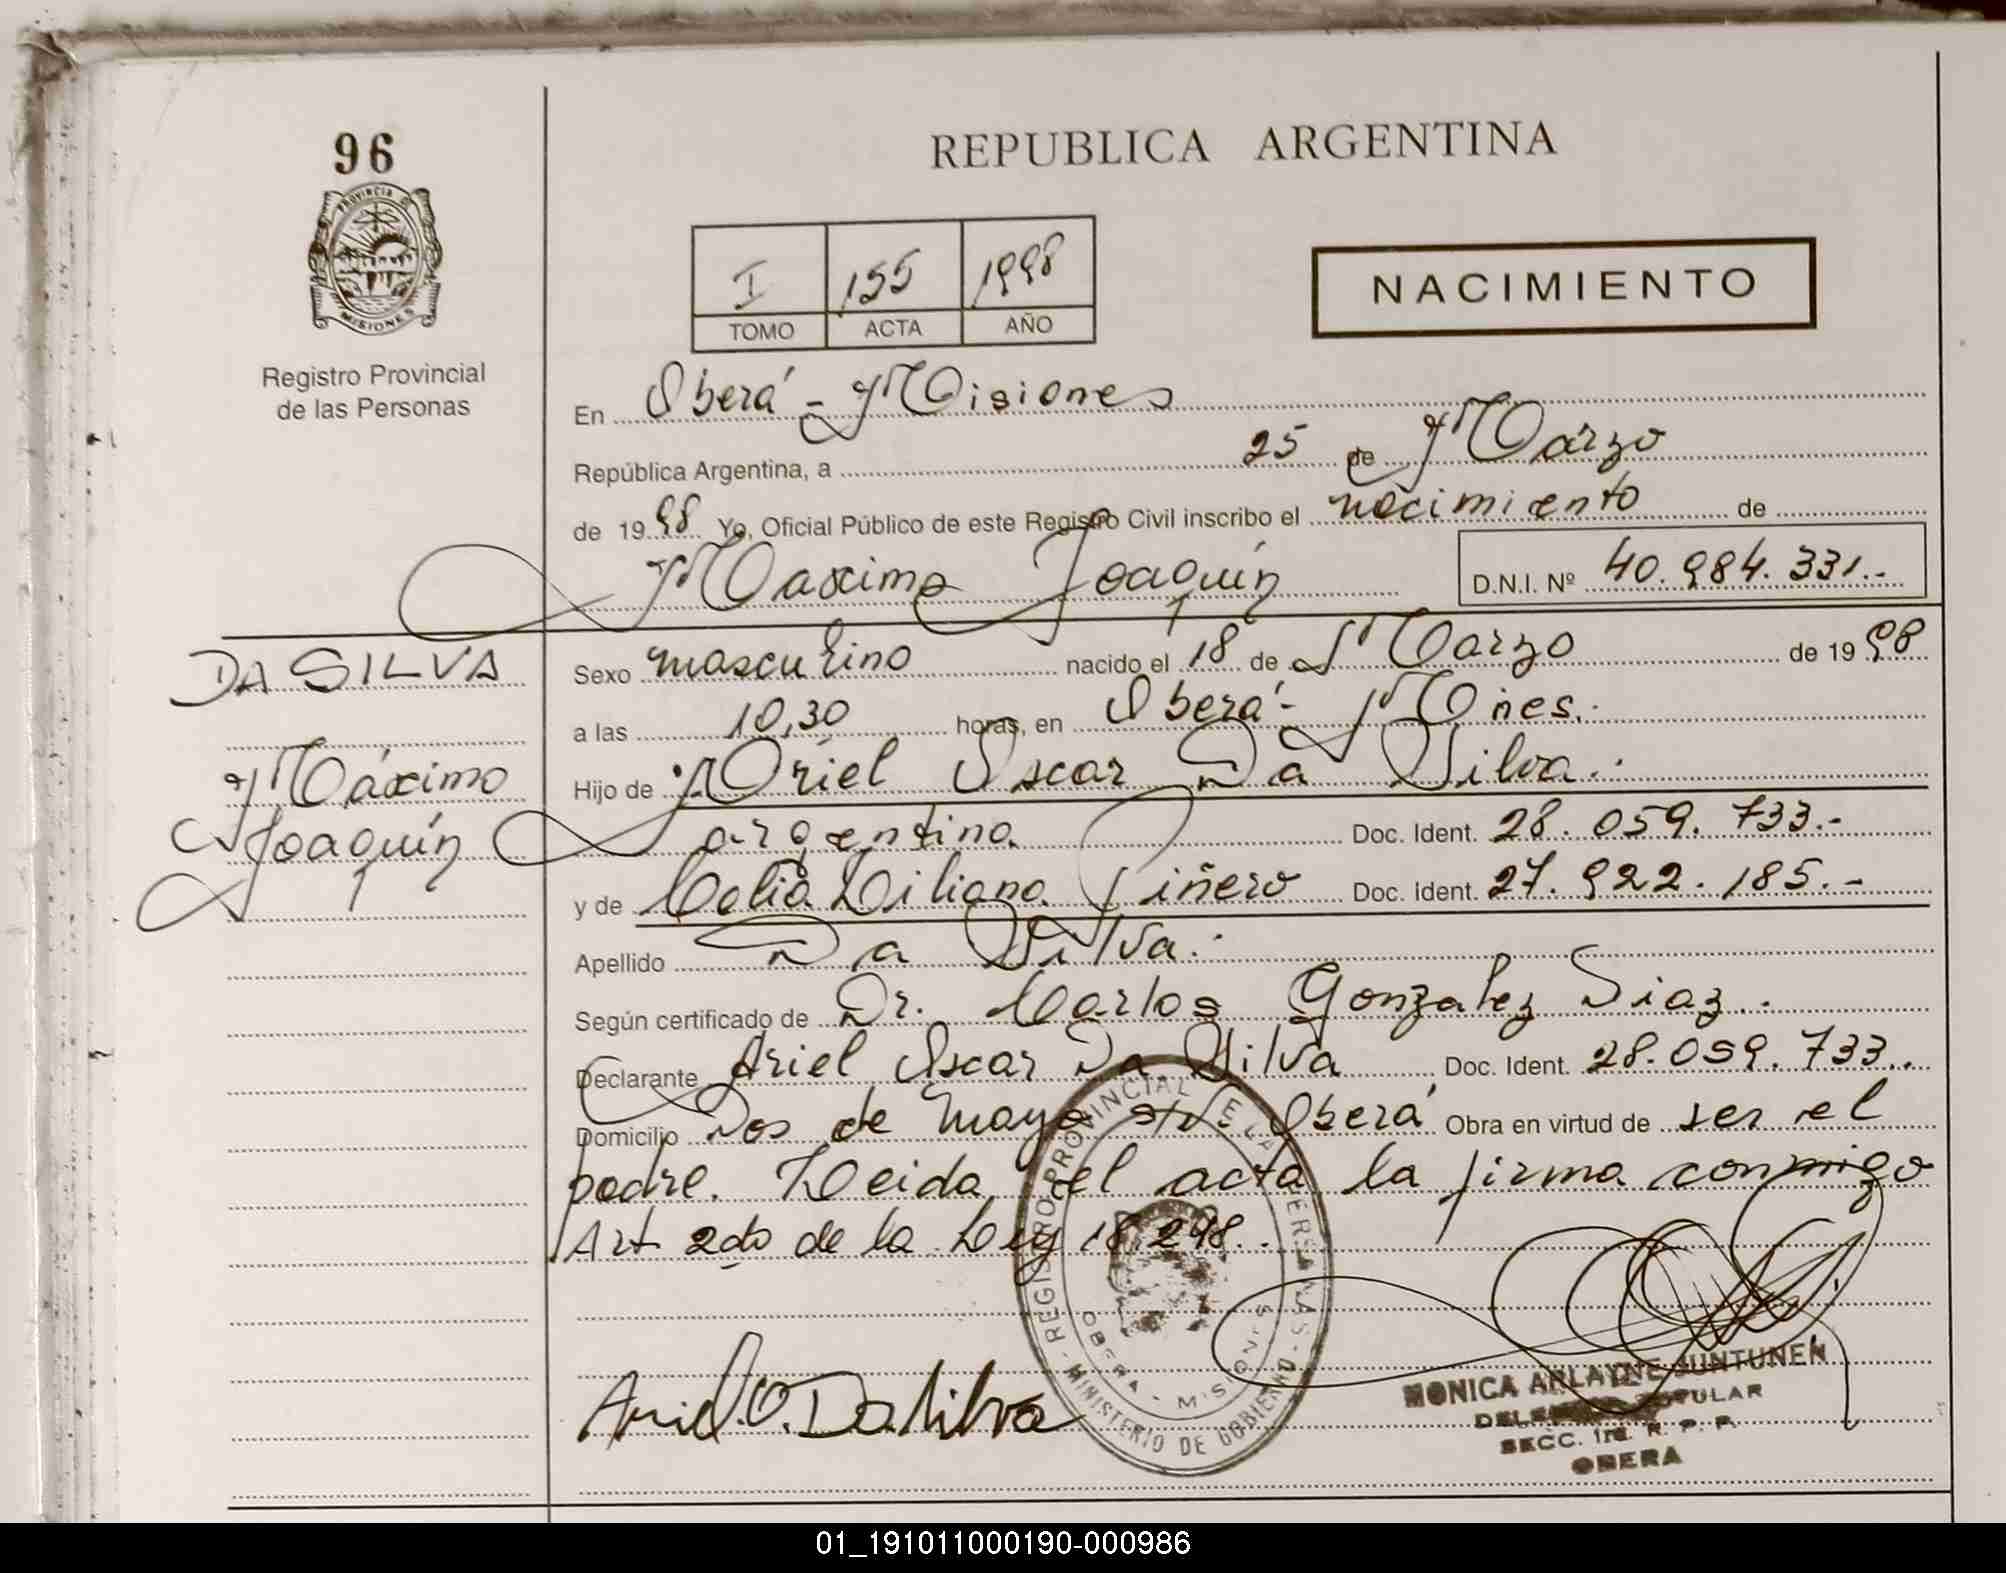 96
REPUBLICA ARGENTINA
PROVINCIA DE
MISIONES
Registro Provincial
de las Personas
I 155 1998
TOMO ACTA AÑO
NACIMIENTO
En Oberá - Misiones
República Argentina, a 25 de Marzo
de 1998 Yo, Oficial Público de este Registro Civil inscribo el nacimiento de
Maximo Joaquín D.N.I. Nº 40.984.331.-
DA SILVA
Máximo
Joaquín
Sexo masculino nacido el 18 de Marzo de 1998
a las 10,30 horas, en Oberá - Mnes.
Hijo de Ariel Oscar Da Silva.
argentino Doc. Ident. 28.059.733.-
y de Celia Liliana Piñero Doc. Ident. 27.922.185.-
Apellido Da Silva.
Según certificado de Dr. Carlos Gonzalez Diaz.
Declarante Ariel Oscar Da Silva Doc. Ident. 28.059.733..
Domicilio Dos de Mayo s/nº Oberá Obra en virtud de ser el
padre. Leida el acta la firma conmigo
Art 2do de la Ley 18.248..
REGISTRO PROVINCIAL DE LAS PERSONAS - MINISTERIO DE GOBIERNO -
OBERA - MISIONES
Ariel.O.DaSilva
MONICA ARLAYNE JUNTUNEN
SECC. 1ra. R. P. P.
OBERA
01_191011000190-000986